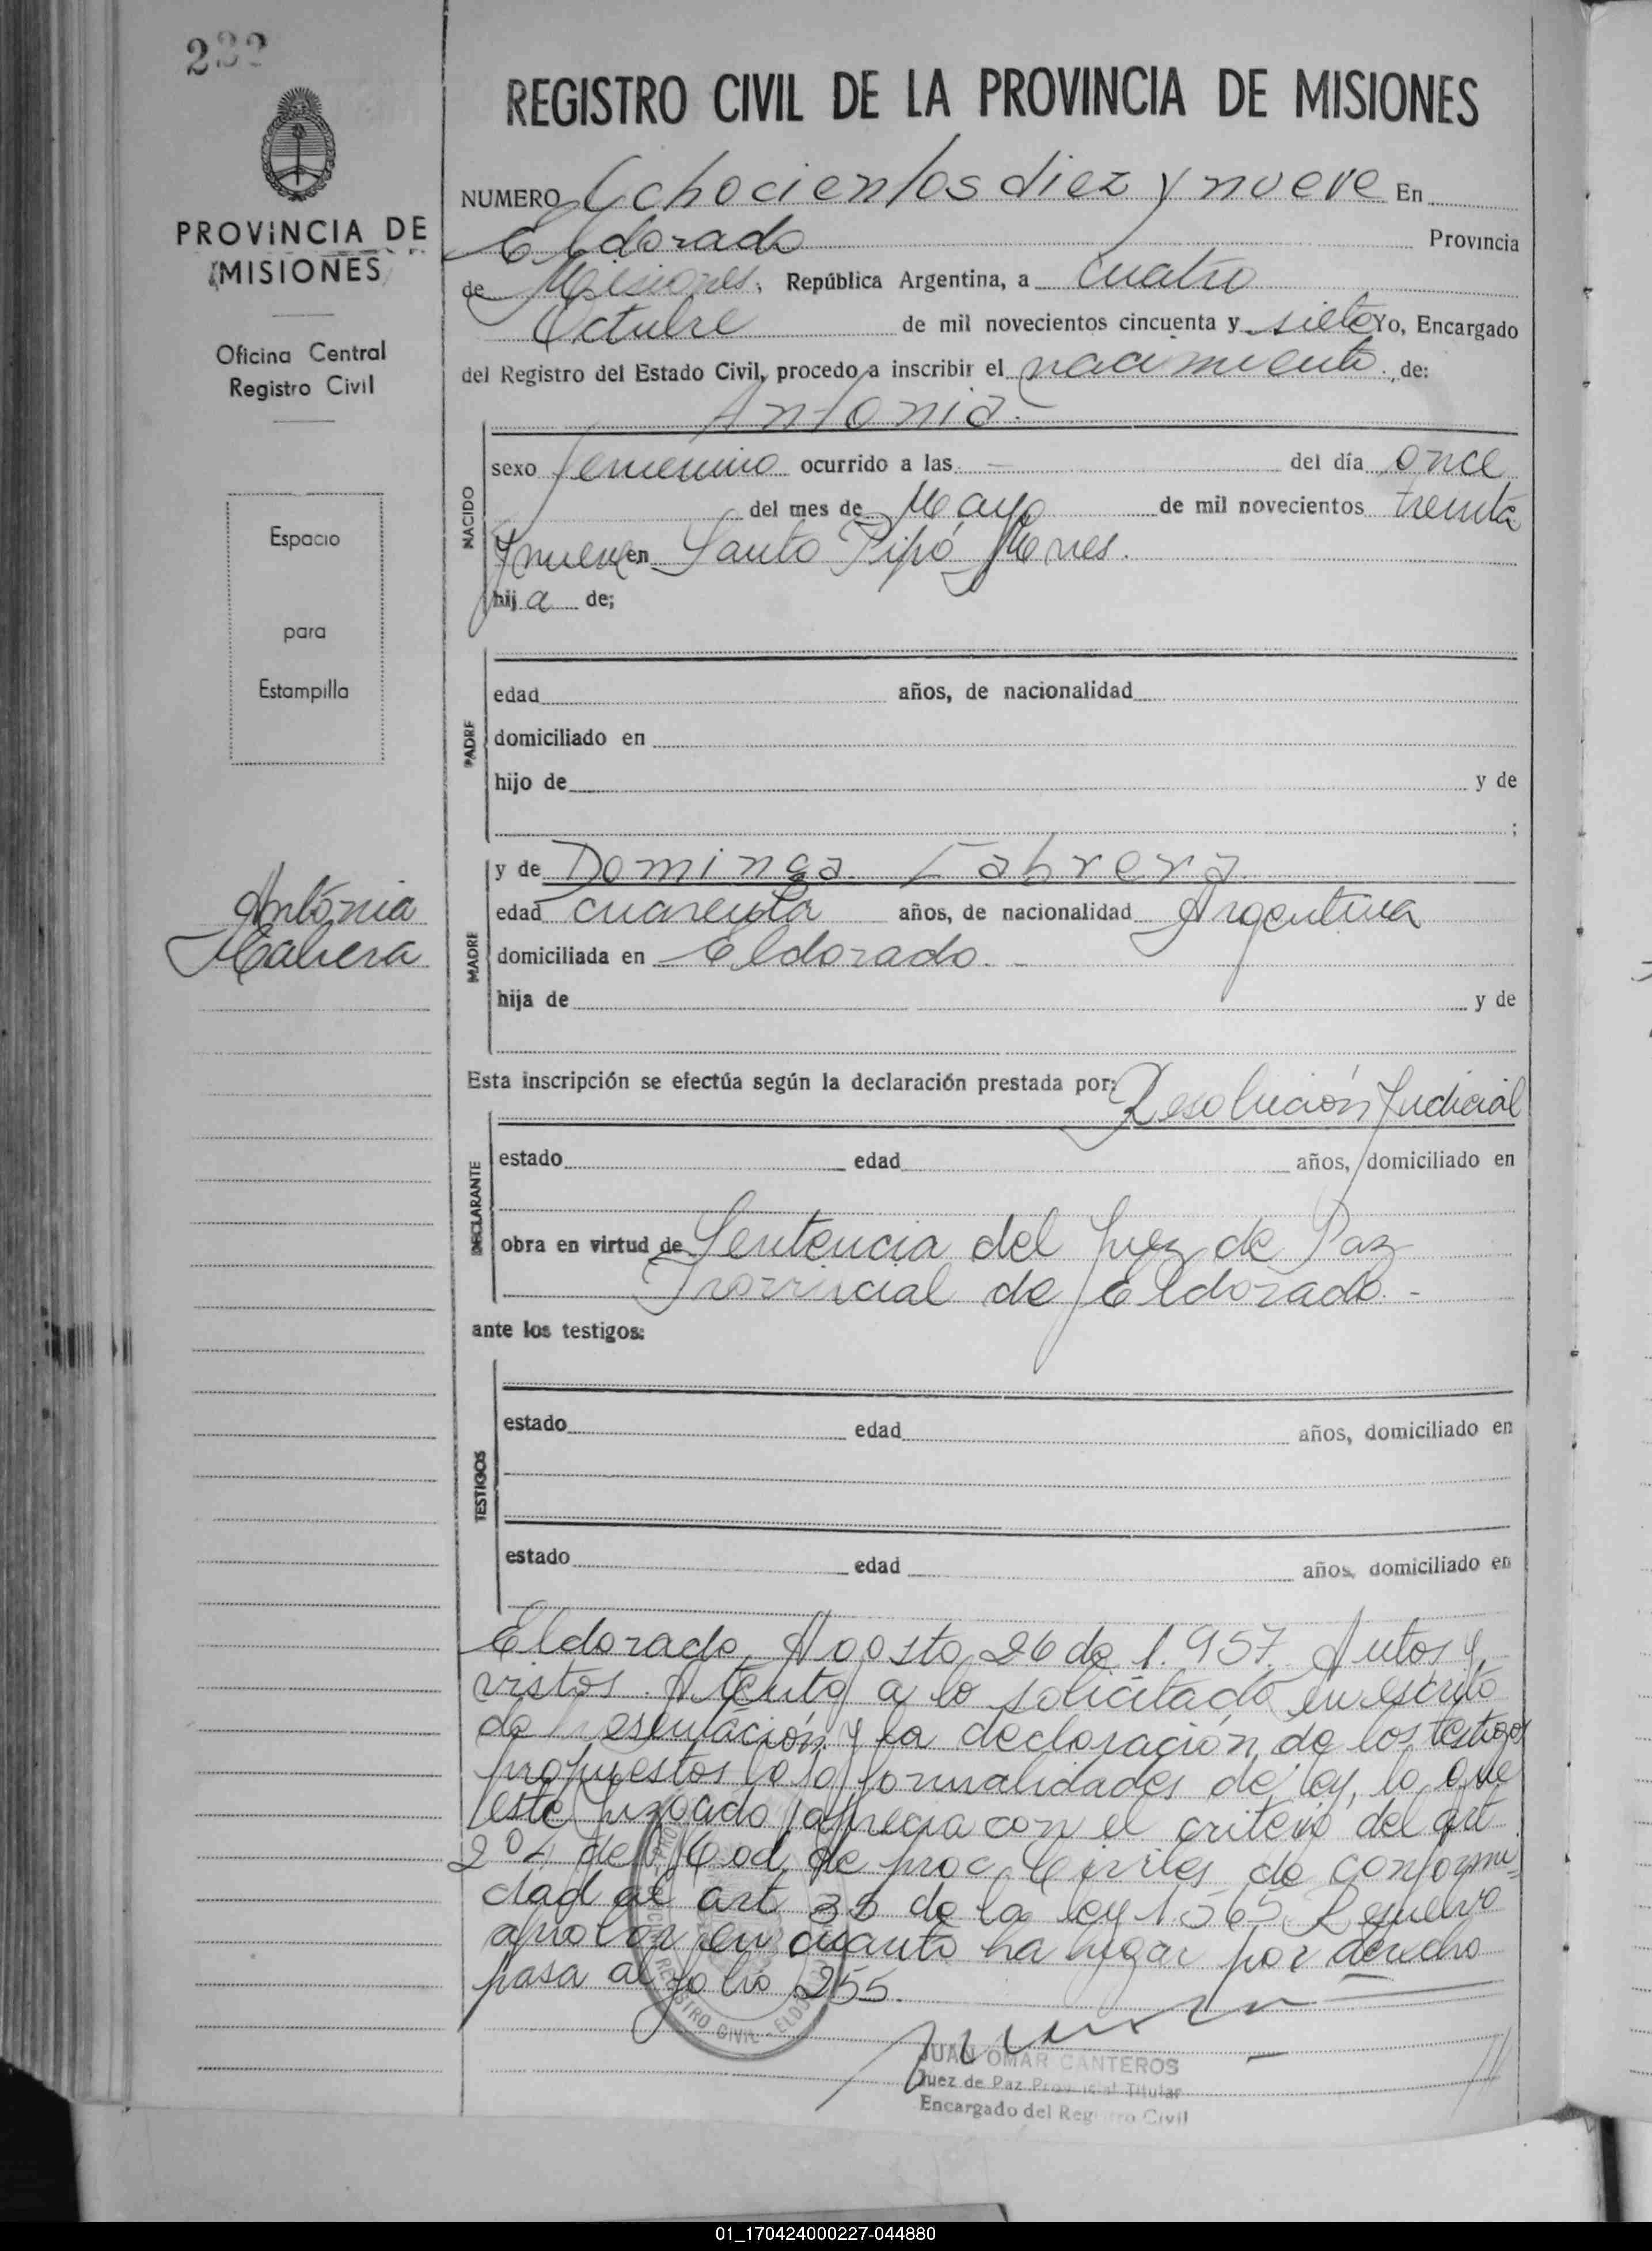 232
PROVINCIA DE
MISIONES
Oficina Central
Registro Civil
Espacio
para
Estampilla
Antonia
Cabrera
REGISTRO CIVIL DE LA PROVINCIA DE MISIONES
NUMERO Ochocientos diez y nueve En
Eldorado Provincia
de Misiones, República Argentina, a cuatro
Octubre de mil novecientos cincuenta y siete Yo, Encargado
del Registro del Estado Civil, procedo a inscribir el nacimiento, de:
Antonia.-
NACIDO
sexo femenino ocurrido a las - del día once
del mes de Mayo de mil novecientos treinta
y nueve en Santo Pipó Mones.
hija de;
PADRE
edad años, de nacionalidad
domiciliado en
hijo de y de
;
MADRE
y de Dominga Cabrera.
edad cuarenta años, de nacionalidad Argentina
domiciliada en Eldorado.-
hija de y de
Esta inscripción se efectúa según la declaración prestada por: Resolución Judicial
DECLARANTE
estado edad años, domiciliado en
obra en virtud de Sentencia del Juez de Paz
Provincial de Eldorado.-
ante los testigos:
TESTIGOS
estado edad años, domiciliado en
estado edad años, domiciliado en
Eldorado, Agosto 26 de 1.957. Autos y
vistos. Atento a lo solicitado en escrito
de presentación y la declaración de los testigos
propuestos bajo formalidades de ley, lo que
este Juzgado aprecia con el criterio del art
204 del Cod. de proc. Civiles de conformi-
dad al art 35 de la ley 1565 Resuelvo
aprobar en cuanto ha lugar por derecho
pasa al folio 255.
REGISTRO CIVIL - ELDO
JUAN OMAR CANTEROS
Juez de Paz Provincial Titular
Encargado del Registro Civil
01_170424000227-044880